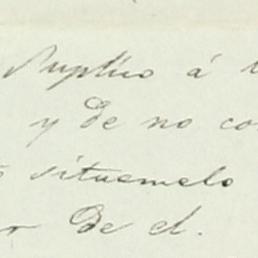 Suplico á
y de no co
situemelo
r de el.